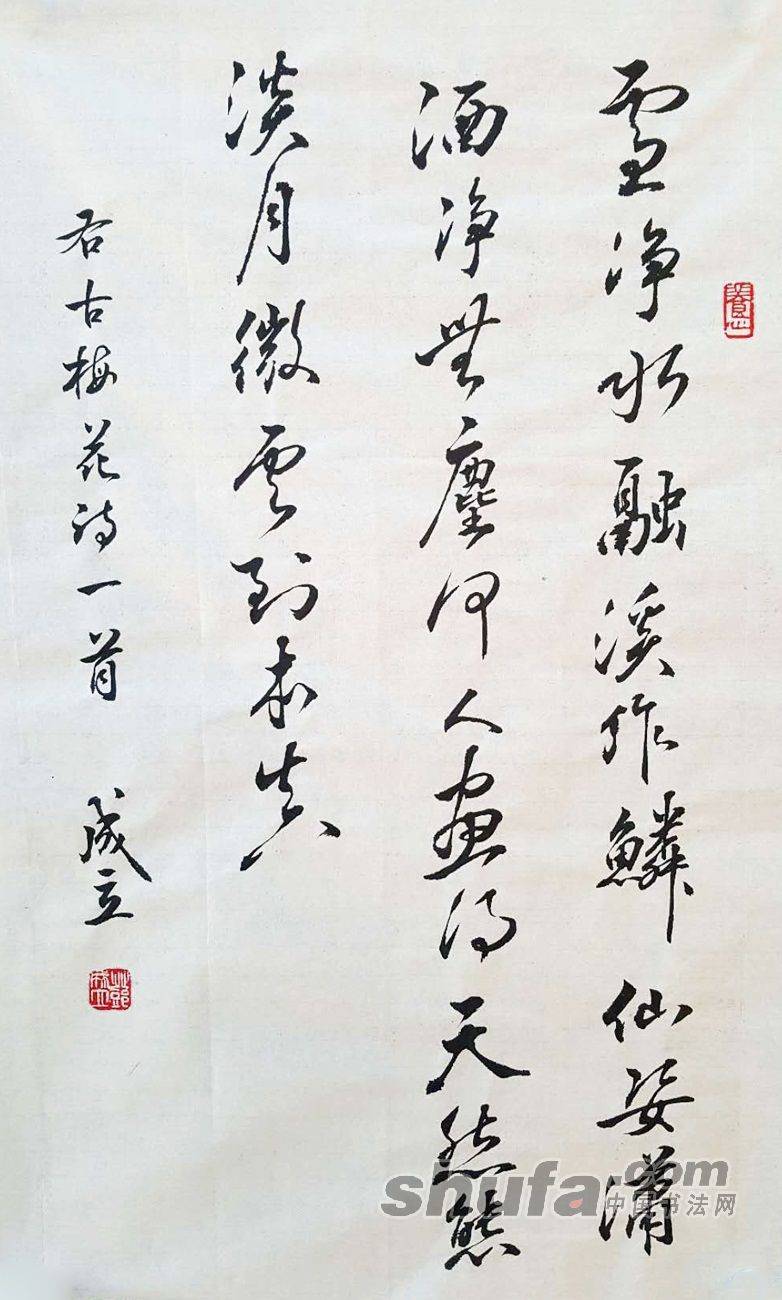 雪净冰融溪作鳞仙姿潇
洒净無塵何人畫得天然態
淡月微雲到未真
右古梅花詩一首 成立
shufa.com
中国书法网